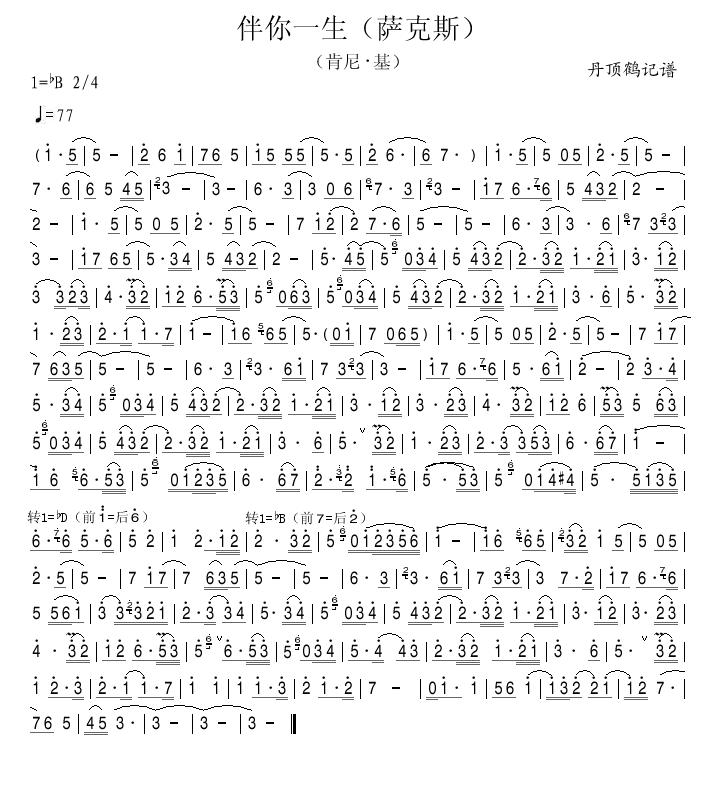 伴你一生（萨克斯）
（肯尼·基）
丹顶鹤记谱
1=♭B 2/4
♩=77
(1·5|5 –|2 6 1|76 5|15 55|5·5|2 6·|6 7·)|1·5|5 05|2·5|5 –|
7·6|6 5 45|3 –|3 –|6·3|3 0 6|7·3|3 –|17 6·6|5 432|2 –|
2 –|1·5|5 0 5|2·5|5 –|7 12|2 7·6|5 –|5 –|6·3|3 ·6|7 33|
3 –|17 65|5·34|5 432|2 –|5·45|5 034|5 432|2·32 1·21|3·12|
3 323|4·32|12 6·53|5 063|5 034|5 432|2·32 1·21|3·6|5·32|
1·23|2·1 1·7|1 –|16 65|5·(01|7 065)|1·5|5 05|2·5|5 –|7 17|
7 635|5 –|5 –|6·3|3·61|7 323|3 –|17 6·6|5·61|2 –|2 3·4|
5·34|5 034|5 432|2·32 1·21|3·12|3·23|4·32|12 6|53 5 63|
5 034|5 432|2·32 1·21|3·6|5·ˇ32|1·23|2·3 353|6·67|1 –|
1 6 6·53|5 01235|6·67|2·2 1·6|5·53|5 014#4|5·5135|
转1=♭D（前1=后6） 转1=♭B（前7=后2）
6·6 5·6|5 2|1 2·12|2·32|5 012356|1 –|16 65|32 15|5 05|
2·5|5 –|7 17|7 635|5 –|5 –|6·3|3·61|7 323|3 7·2|17 6·6|
5 561|3 3321|2·3 34|5·34|5 034|5 432|2·32 1·21|3·12|3·23|
4·32|12 6·53|5ˇ6·53|5 034|5·4 43|2·32 1·21|3·6|5·ˇ32|
1 2·3|2·1 1·7|1 1|1 1·3|2 1·2|7 –|01·1|56 1|132 21|12 7·|
76 5|45 3·|3 –|3 –|3 –‖